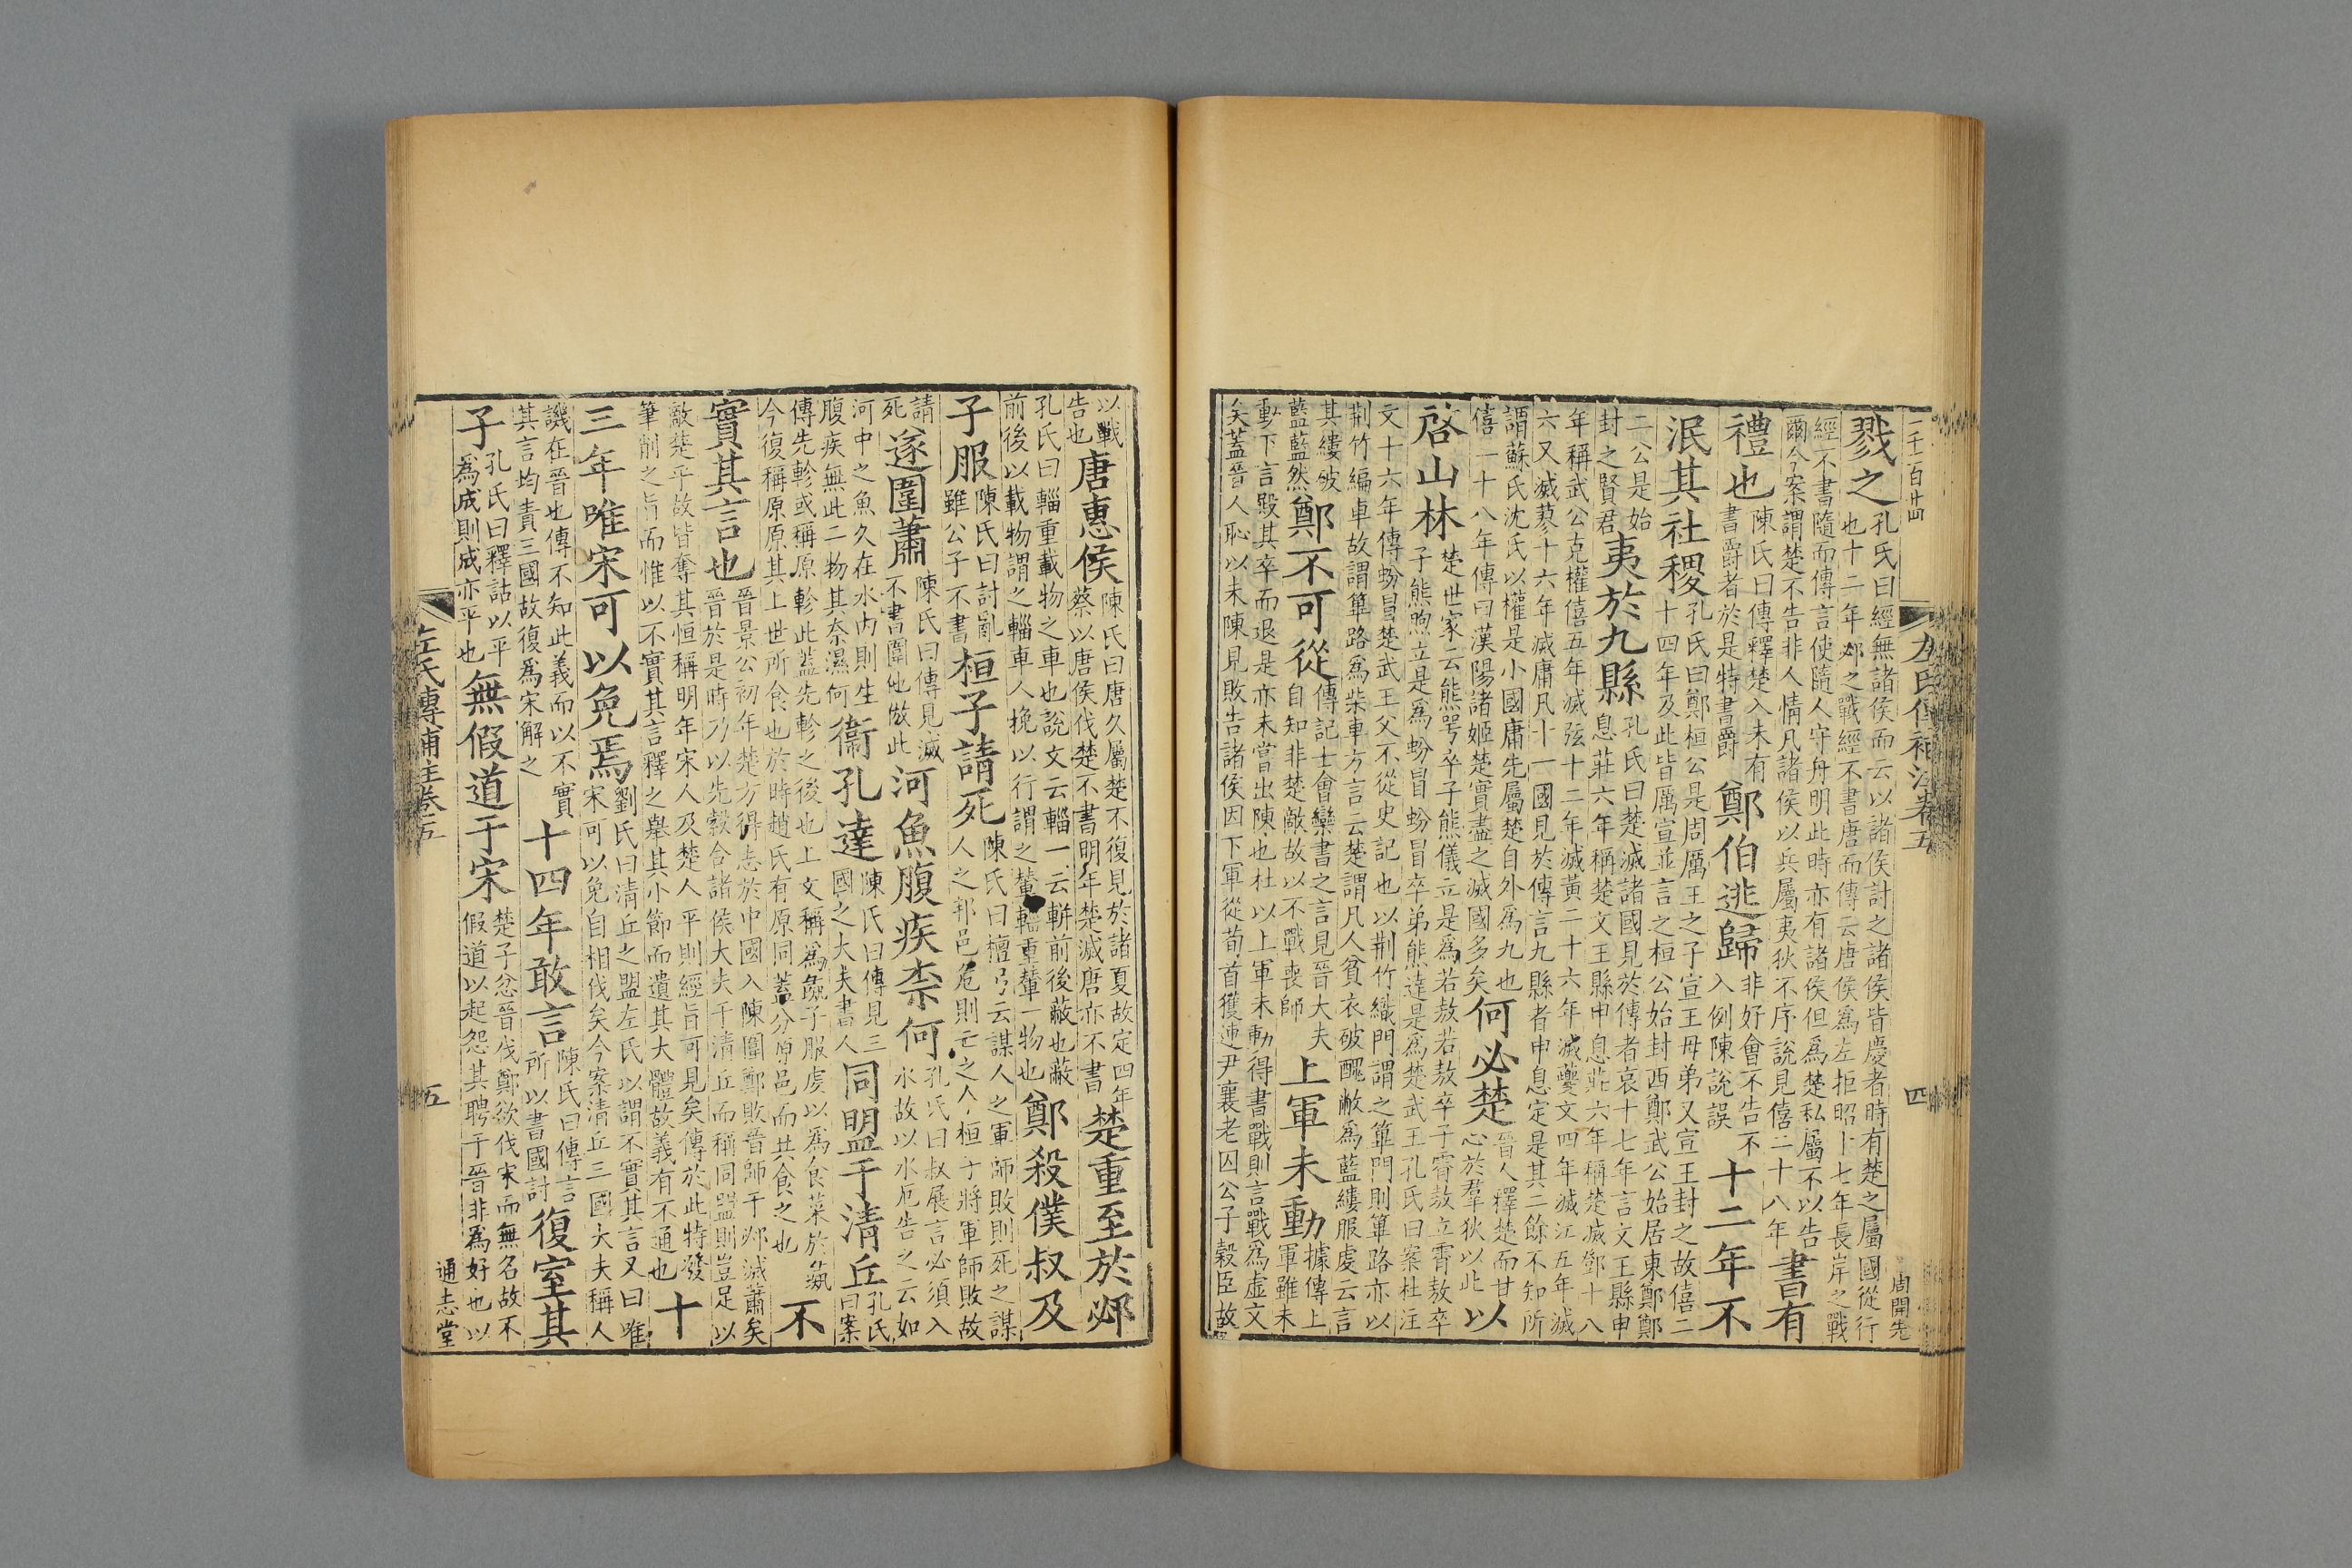 左氏傳補注卷五
四
周開先
戮之孔氏曰經無諸侯而云以諸侯討之諸侯皆慶者時有楚之屬國從行
也十二年邲之戰經不書唐而傳云唐侯爲左拒昭十七年長岸之戰
經不書隨而傳言使隨人守舟明此時亦有諸侯但爲楚私屬不以告
爾今案謂楚不告非人情凡諸侯以兵屬夷狄不序說見僖二十八年書有
禮也陳氏曰傳釋楚入未有書爵者於是特書爵鄭伯逃歸非好會不告不入例陳說誤十二年不
泯其社稷孔氏曰鄭桓公是周厲王之子宣王母弟又宣王封之故僖二
十四年及此皆厲宣並言之桓公始封西鄭武公始居東鄭鄭
二公是始封之賢君夷於九縣孔氏曰楚滅諸國見於傳者哀十七年言文王縣申
息莊六年稱楚文王縣申息莊六年稱楚滅鄧十八
年稱武公克權僖五年滅弦十二年滅黃二十六年滅夔文四年滅江五年滅
六又滅蓼十六年滅庸凡十一國見於傳言九縣者申息定是其二餘不知所
謂蘇氏沈氏以權是小國庸先屬楚自外爲九也
僖二十八年傳曰漢陽諸姬楚實盡之滅國多矣何必楚晉人釋楚而甘心於羣狄以此以
啓山林楚世家云熊咢卒子熊儀立是爲若敖若敖卒子霄敖立霄敖卒
子熊煦立是爲蚡冒蚡冒卒弟熊達是爲楚武王孔氏曰案杜注
文十六年傳蚡冒楚武王父不從史記也以荆竹織門謂之篳門則篳路亦以
荆竹編車故謂篳路爲柴車方言云楚謂凡人貧衣破醜敝爲藍縷服虔云言
其縷破藍藍然鄭不可從傳記士會欒書之言見晉大夫自知非楚敵故以不戰喪師上軍未動據傳上軍雖未
動下言殿其卒而退是亦未嘗出陳也杜以上軍未動得書戰則言戰爲虛文
矣蓋晉人恥以未陳見敗告諸侯因下軍從荀首獲連尹襄老囚公子穀臣故
以戰告也唐惠侯陳氏曰唐久屬楚不復見於諸夏故定四年
蔡以唐侯伐楚不書明年楚滅唐亦不書楚重至於邲
孔氏曰輜重載物之車也說文云輜一云軿前後蔽也蔽
前後以載物謂之輜車人挽以行謂之輦輜重輦一物也鄭殺僕叔及
子服陳氏曰討亂雖公子不書桓子請死陳氏曰檀弓云謀人之軍師敗則死之謀
人之邦邑危則亡之今桓子將軍師敗故
請死遂圍蕭陳氏曰傳見滅不書圍他倣此河魚腹疾柰何孔氏曰叔展言必須入
水故以水厄告之云如
河中之魚久在水內則生
腹疾無此二物其柰濕何衞孔達陳氏曰傳見三國之大夫書人同盟于清丘孔氏曰案
傳先軫或稱原軫此蓋先軫之後也上文稱爲彘子服虔以爲食菜於彘
今復稱原原其上世所食也於時趙氏有原同蓋分原邑而共食之也不
實其言也晉景公初年楚方得志於中國入陳圍鄭敗晉師于邲滅蕭矣
晉於是時乃以先縠合諸侯大夫于清丘而稱同盟則豈足以
敵楚乎故皆奪其恒稱明年宋人及楚人平則經旨可見矣傳於此特發
筆削之旨而惟以不實其言釋之舉其小節而遺其大體故義有不通也十
三年唯宋可以免焉劉氏曰清丘之盟左氏以謂不實其言又曰唯
宋可以免自相伐矣今案清丘三國大夫稱人
譏在晉也傳不知此義而以不實
其言均責三國故復爲宋解之十四年敢言陳氏曰傳言所以書國討復室其
子孔氏曰釋詁以平爲成則成亦平也無假道于宋楚子忿晉伐鄭欲伐宋而無名故不
假道以起怨其聘于晉非爲好也以
左氏傳補注卷五
五
通志堂